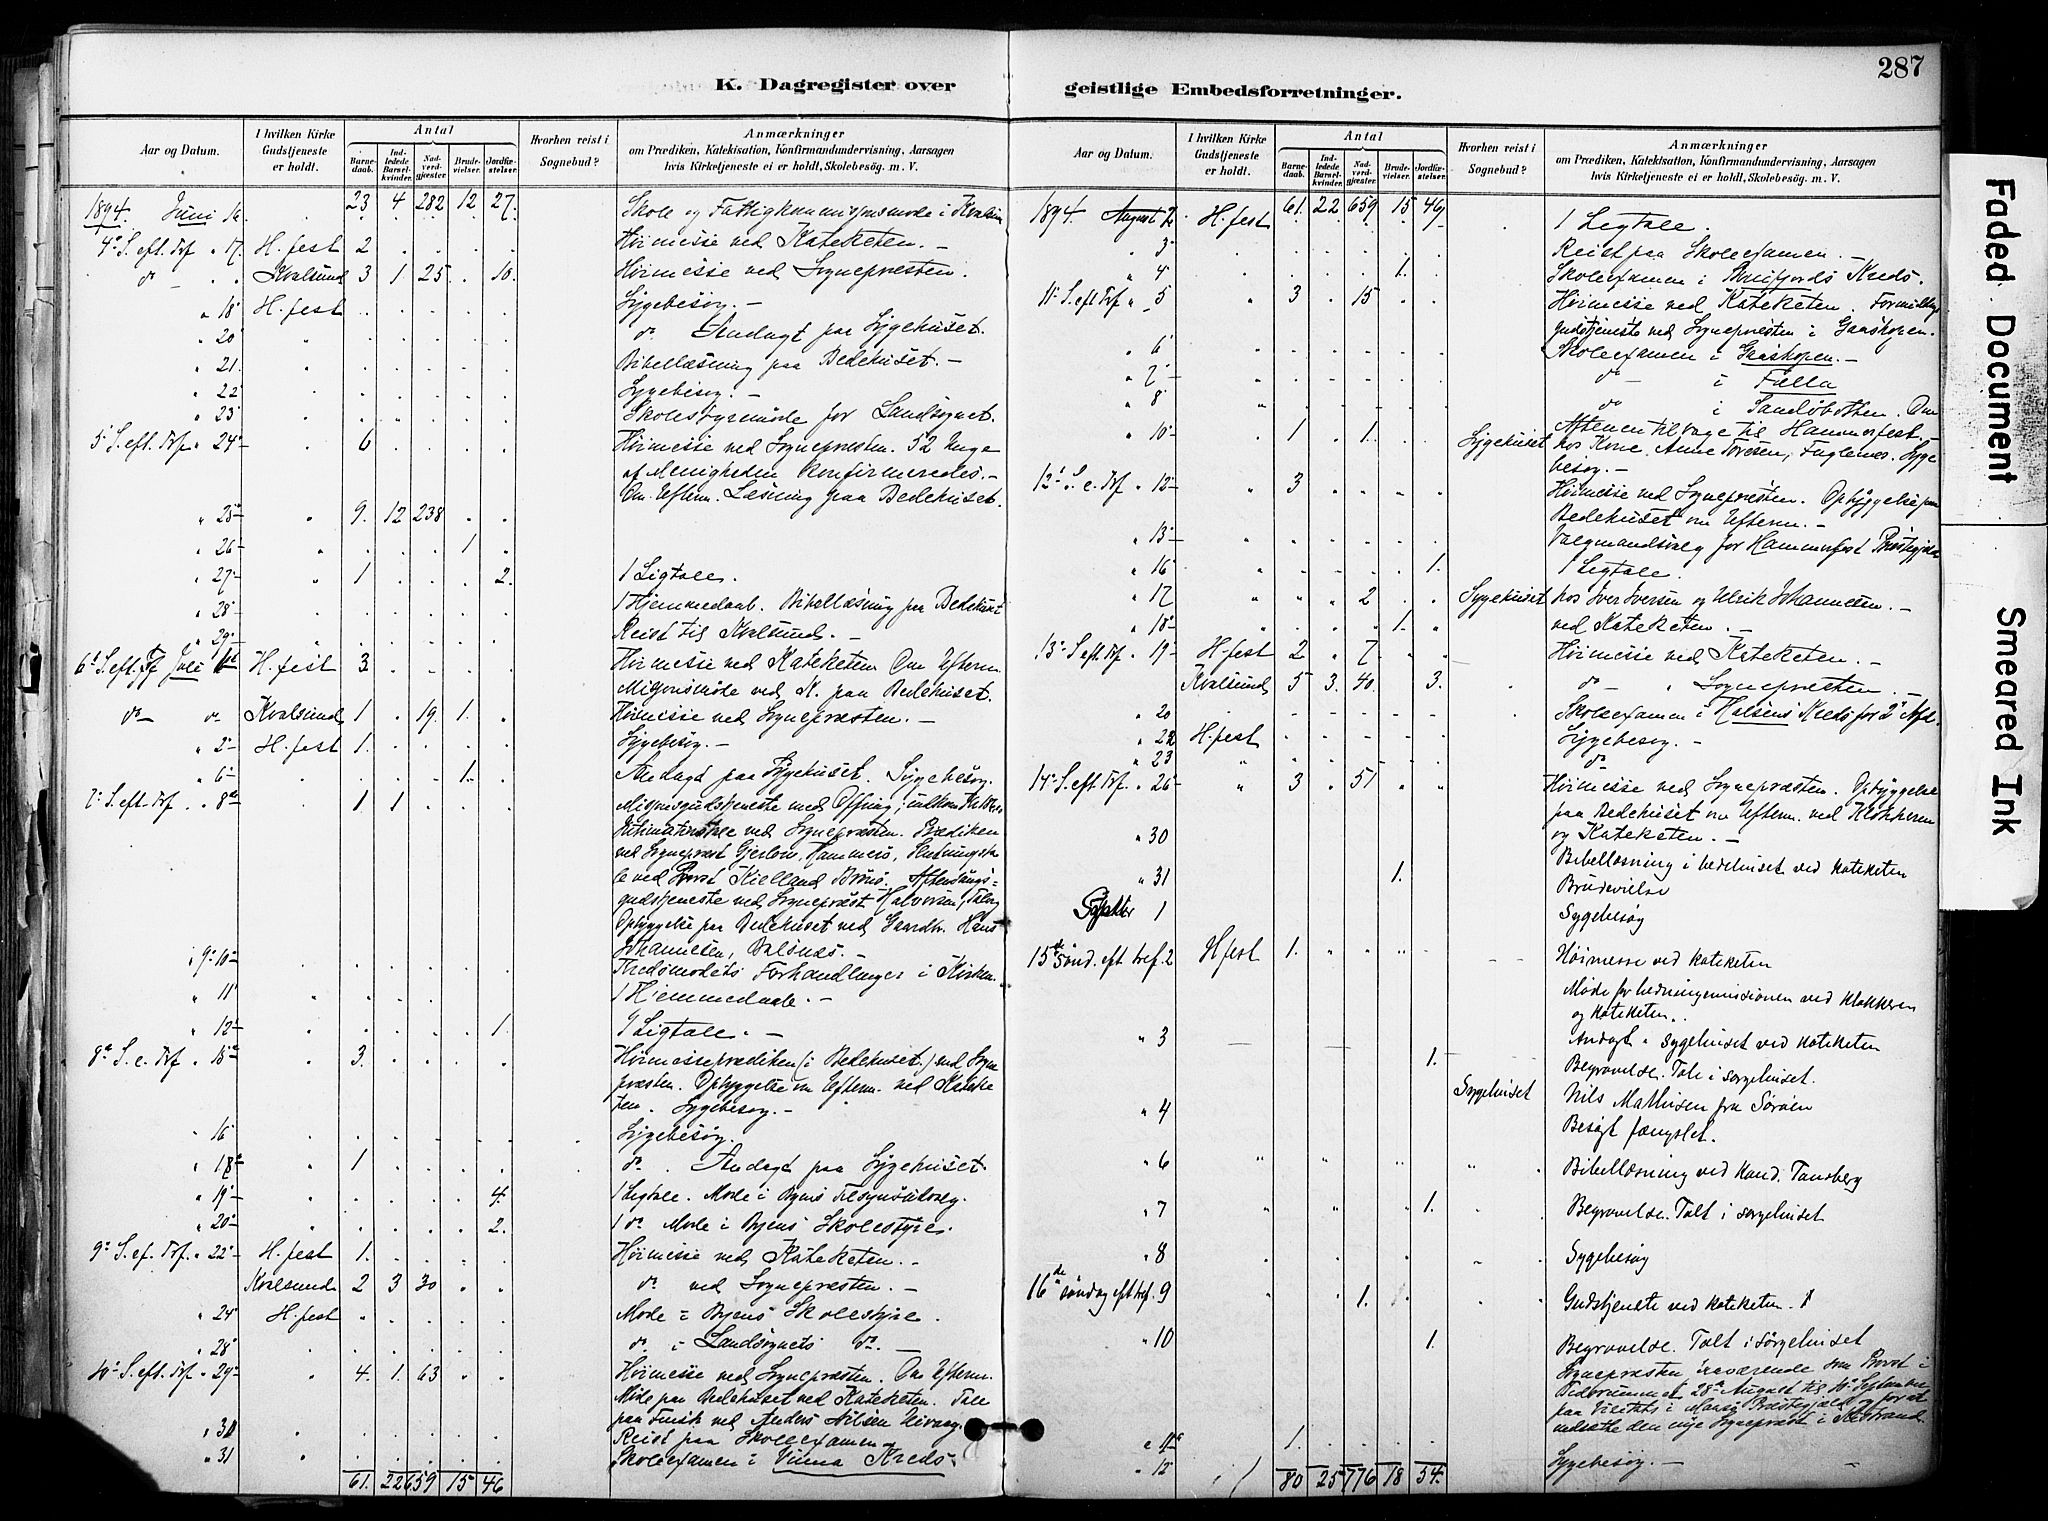 287
K. Dagregister over
geistlige Embedsforretninger.
Aar og Datum.
I hvilken Kirke Gudstjeneste er holdt.
Antal
Barnedaab.
Indledede Barselkvinder.
Nadverdgjæster
Brudevielser.
Jordfæstelser.
Hvorhen reist i Sognebud?
Anmærkninger
om Prædiken, Katekisation, Konfirmandundervisning, Aarsagen
hvis Kirketjeneste ei er holdt, Skolebesög. m. V.
1894. Juni 16. 23 4 282 12 27. Skole og Fattigkommissionsmøde i Kvalsund
4de S. eft. Trf. " 17. H.fest 2 Høimesse ved Kateketen. —
do — Kvalsund 3 1 25 10. Høimesse ved Sognepræsten.
" 18 H.fest Sygebesøg. —
" 20 do Andagt paa Sygehuset.
" 21. Bibellæsning paa Bedehuset. —
" 22 Sygebesøg. —
" 23 Skolestyremøde for Landsognet.
5te S. eft. Trf. " 24 6 Høimesse ved Sognepræsten. 52 Unge
af Menigheden konfirmeredes. —
Om Efterm. Læsning paa Bedehuset.
" 25 9. 12 238
" 26 1
" 27 1 2. 1 Ligtale.
" 28 1 Hjemmedaab. Bibellæsning paa Bedehuset
" 29 Reist til Kvalsund. —
6te S. eft. Trf. Juli 1ste H.fest 3. Høimesse ved Kateketen Om Efterm.
Misjonsmøde ved K. paa Bedehuset.
do do Kvalsund 1 19. 1. Høimesse ved Sognepræsten. —
" 2 H.fest 1. Sygebesøg. —
" 6 1. Andagt paa Sygehuset. Sygebesøg.
7de S. eft. Trf. " 8de 1 1 Misjonsgudstjeneste med Offring;
ved Sognepræsten. Prædiken
ved Sognepræst Gjerløw, Hammerø,
ved Provst Kielland Brønø. Aftensangs=
gudstjeneste ved Sognepræst Halvorsen, Talvig
Opbyggelse paa Bedehuset ved Gaardbr. Hans
Johannesen, Balsnæs. —
" 9de 10de Kredsmødets Forhandlinger i Kirken.
" 11 1 Hjemmedaab. —
" 12 1. 1 Ligtale. —
8de S. e. Trf " 15de 3. Høimesseprædiken (i Bedehuset.) ved Sogne
præsten. Opbyggelse om Efterm. ved Kateke
ten. Sygebesøg. —
" 16 Sygebesøg.
" 18 1 do. Andagt paa Sygehuset.
" 19 4. 1 Ligtale. Møde i Byens Tilsynsudvalg.
" 20 2. 1 do Møde i Byens Skolestyre.
9de S. ef. Trf. " 22 H.fest 1. Høimesse ved Kateketen. —
Kvalsund 2 3 30 do ved Sognepræsten. —
" 24 H.fest Møde i Byens Skolestyre.
" 28 do i Landsognets do. —
10de S. eft. Trf " 29 4. 1. 63 Høimesse ved Sognepræsten. Om Efterm.
Møde paa Bedehuset ved Kateketen. Tale
paa Finsk ved Anders Nilsen
" 30 Reist paa Skoleexamen
" 31 Skoleexamen i Kreds.
61. 22 659 15 46
Aar og Datum.
I hvilken Kirke Gudstjeneste er holdt.
Antal
Barnedaab.
Indledede Barselkvinder.
Nadverdgjæster
Brudevielser.
Jordfæstelser.
Hvorhen reist i Sognebud?
Anmærkninger
om Prædiken, Katekisation, Konfirmandundervisning, Aarsagen
hvis Kirketjeneste ei er holdt, Skolebesög. m. V.
1894. August 2 H.fest 61. 22 659 15 46 1 Ligtale.
3 Reist paa Skoleexamen. —
" 4 1. Skoleexamen i Kreds.
11te S. eft Trf " 5 3 15 Høimesse ved Kateketen. Formiddags
gudstjeneste ved Sognepræsten i Gaashopen.
" 6 Skoleexamen i Gaashopen. —
" 7 do — i Fælla
" 8 do i Sandøbotten. Om
Aftenen tilbage til Hammerfest. —
" 10 1 1. Sygehuset hos Kone Anne Toresen, Fuglenes. Syge
besøg. —
12te S. e. Trf " 12 3 Høimesse ved Sognepræsten. Opbyggelse paa
Bedehuset om Efterm. —
" 13 Valgmandsvalg for Hammerfest Præstegjeld
" 16 1. 1 Ligtale.
" 17 2 Sygehuset hos Iver Iversen og Ulrik Johannesen. —
" 18 1. ved Kateketen. —
13de S. eft. Trf " 19 H.fest 2 7 Høimesse ved Kateketen. —
Kvalsund 5 3. 40. 3. do — " Sognepræsten. —
" 20 Skoleexamen i Kreds for 2 Afd.
" 22 H.fest Sygebesøg. —
" 23 do
14de S. eft. Trf. " 26 3 51 Høimesse ved Sognepræsten. Opbyggelse
paa Bedehuset om Efterm. ved Klokkeren
og Kateketen. —
" 30 Bibellæsning i bedehuset ved kateketen
" 31 1. Brudevielse
Septbr 1 Sygebesøg
15de sönd. eft tref. 2 H fest 1. Høimesse ved kateketen
Møde for hedningemissionen ved klokkeren
og kateketen.
" 3 Andagt i sygehuset ved kateketen
1. Begravelse. Tale i sørgehuset.
" 4 Sygehuset Nils Mathisen fra Sørøen
Besøgt fængslet.
" 6 Bibellæsning ved Kand. Tansberg
" 7 1. Begravelse. Talt i sørgehuset
" 8 Sygebesøg
16de söndag eft tref. 9 1. Gudstjeneste ved kateketen.
" 10 1. Begravelse. Talt i sørgehuset
Sognepræsten fraværende som Provst i
Tidsrummet 28de August til 10de September
paa Visitats i Maasø Præstegjæld og for at
indsætte den nye Sognepræst i Kistrand
" 11 1.
" 12 Sygebesøg. —
80 25 776 18 54.
Faded Document
Smeared Ink